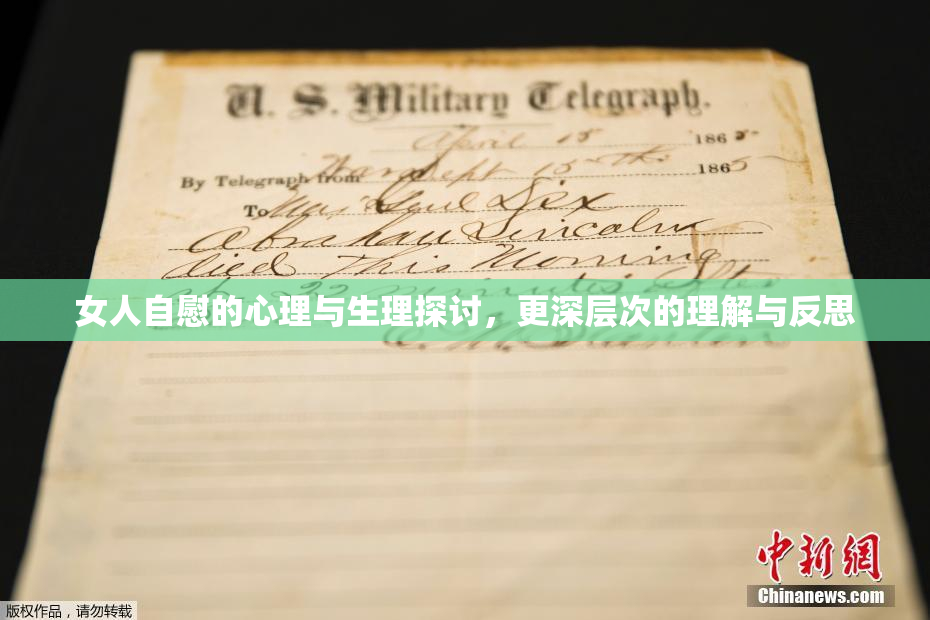 U. S. Military Telegraph.
April 15 1865
By Telegraph from War Dept 15th 1865
To Maj Genl Dix
Abraham Lincoln
died This Morning
22 minutes after
女人自慰的心理与生理探讨，更深层次的理解与反思
中新网
Chinanews.com
版权作品，请勿转载